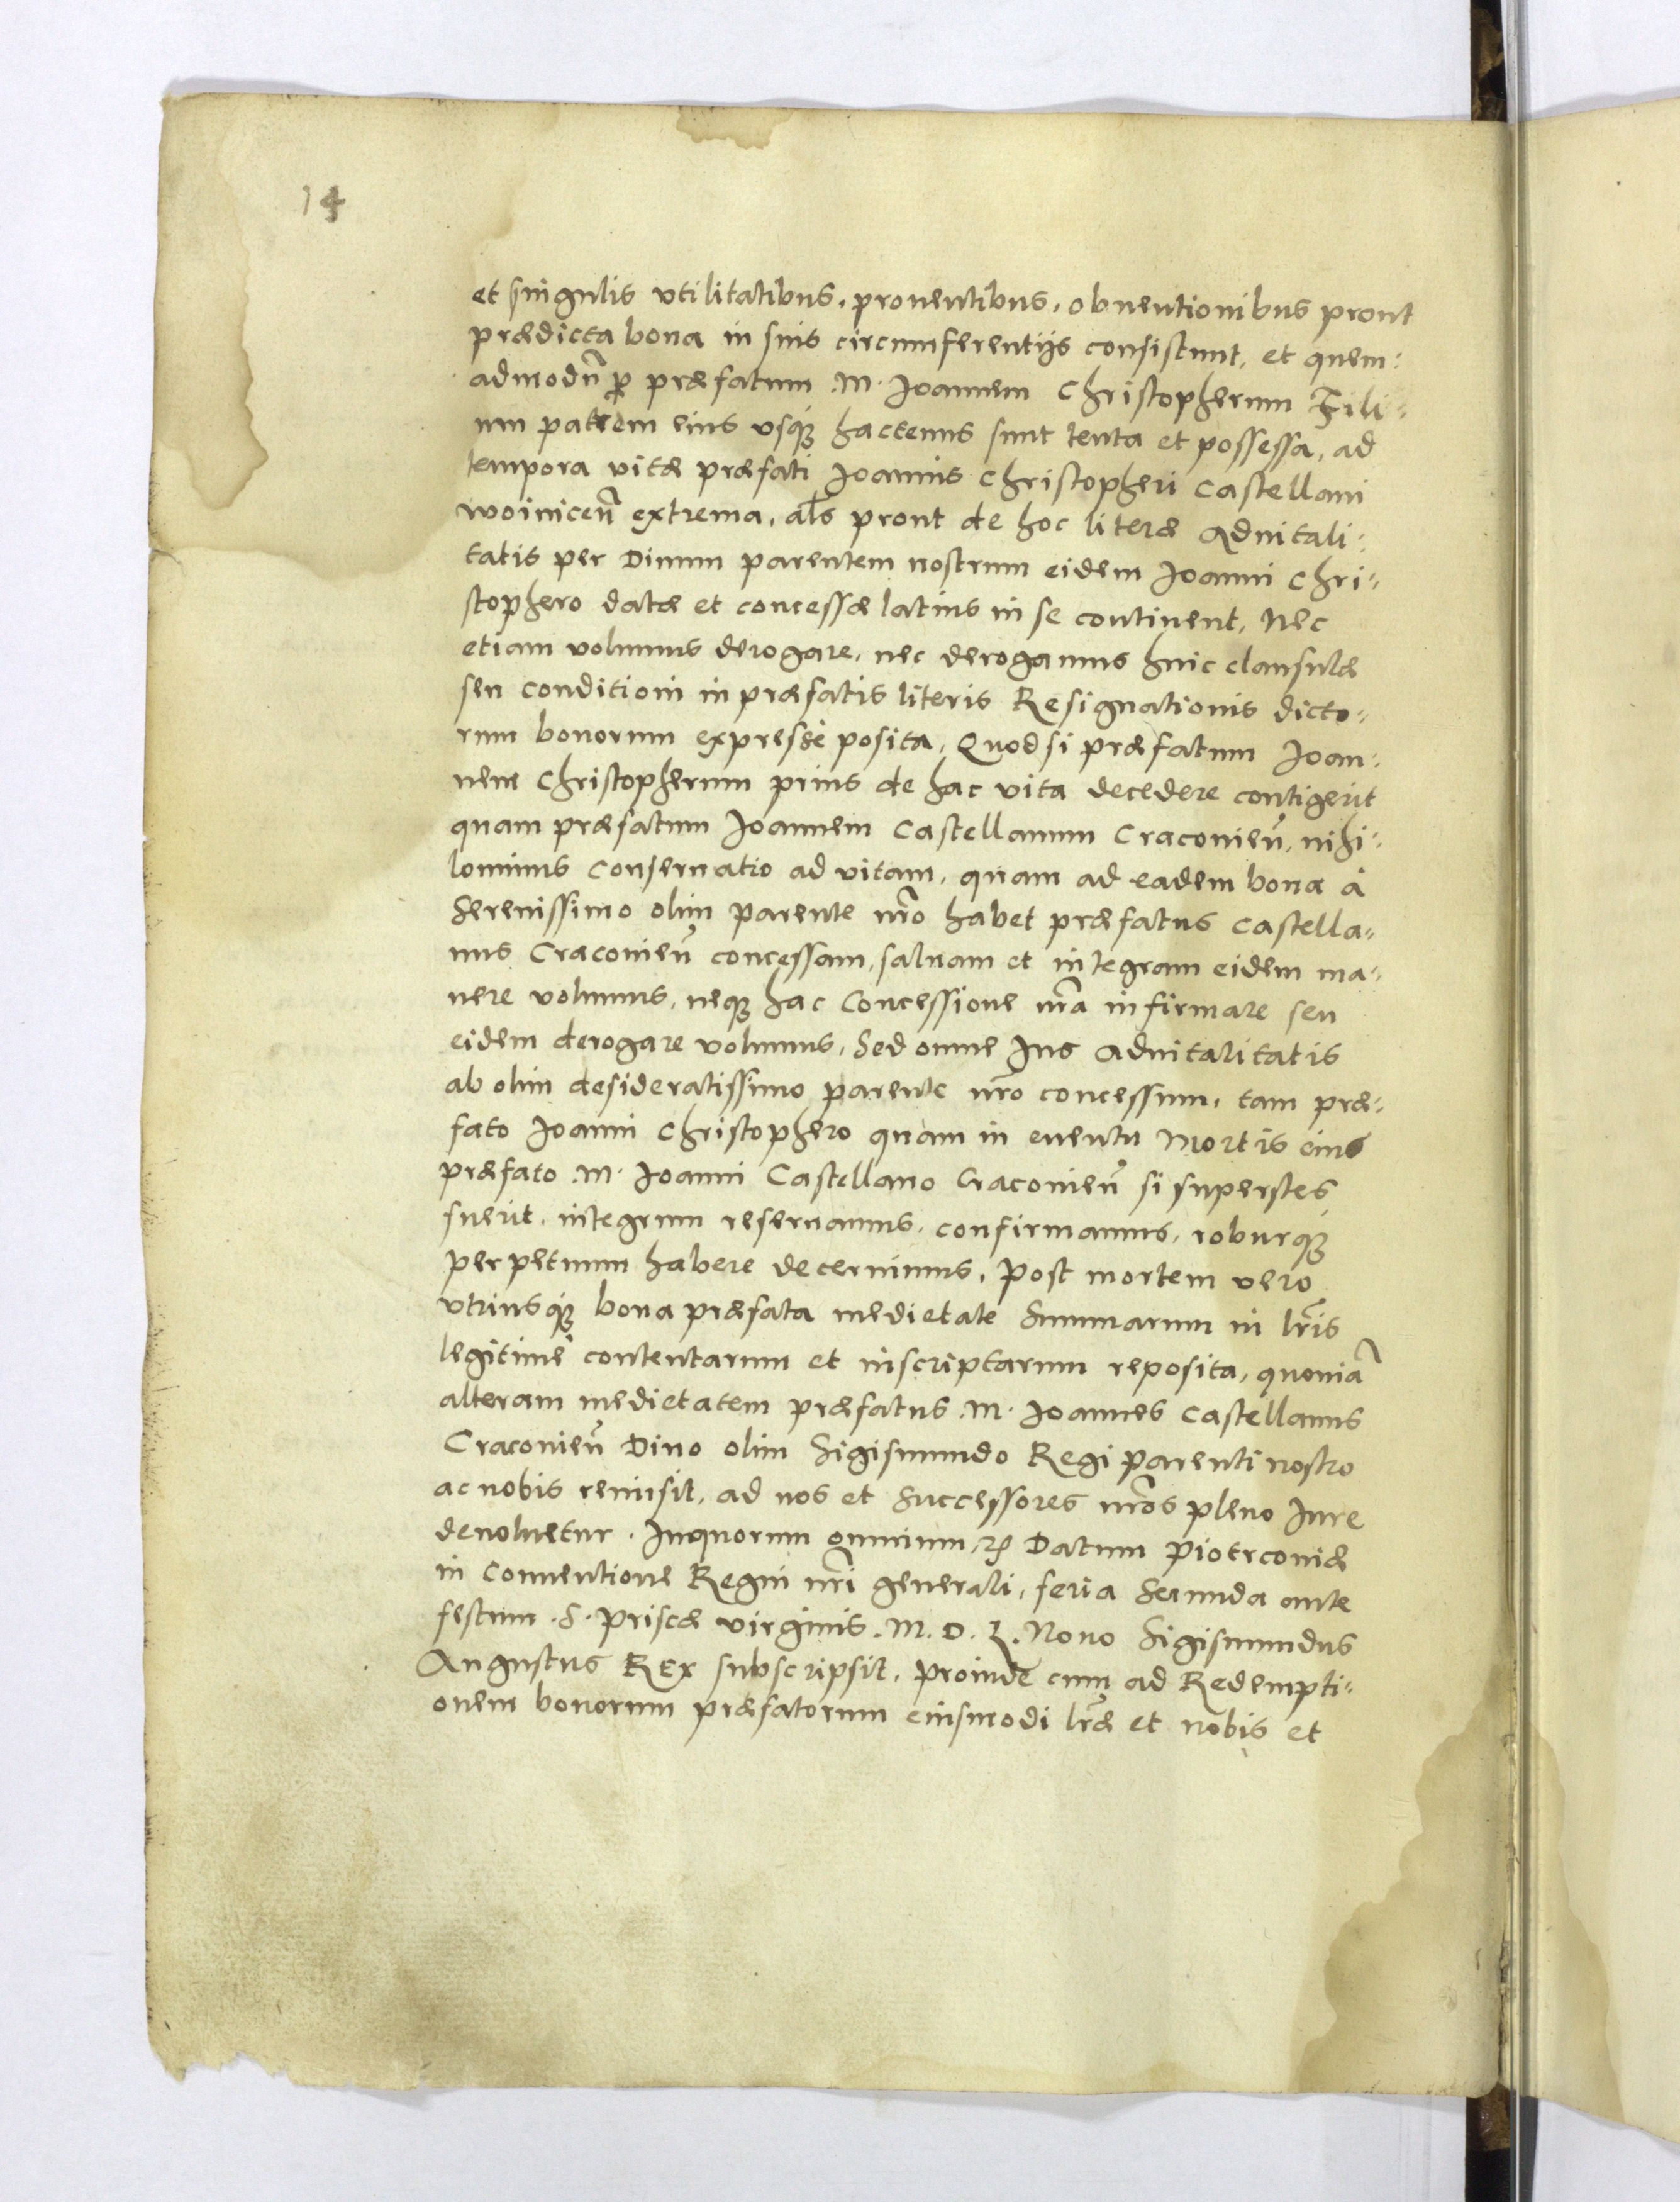 14
et singulis vtilitatibus, prouentibus, obuentionibus prout
prædicta bona in suis circumferentijs consistunt, et quem:
admodũ ꝑ præfatum .M. Joannem Christopherum Fili:
um patrem eius vsq̃ hactenus sunt tenta et possessa, ad
tempora vitæ præfati Joannis Christopheri Castellani
woiniceñ extrema, als prout de hoc literæ Aduitali:
tatis per Diuum parentem nostrum eidem Joanni Chri:
stophero datæ et concessæ latius in se continent, Nec
etiam volumus derogare, nec derogamus huic clausulæ
seu conditioni in præfatis literis Resignationis dicto:
rum bonorum expressè posita, Quod si præfatum Joan:
nem Christopherum prius de hac vita decedere contigerit
quam præfatum Joannem Castellanum Cracouieñ, nihi:
lominus Conseruatio ad vitam, quam ad eadem bona à
Serenissimo olim parente nr̃o habet præfatus Castella:
nus Cracouieñ concessam, saluam et integram eidem ma:
nere volumus, neq̃ hac Concessione nr̃a infirmare seu
eidem derogare volumus, Sed omne Jus aduitalitatis
ab olim desideratissimo parente nr̃o concessum, tam præ:
fato Joanni Christophero quam in euentu Mortis eius
præfato .M. Joanni Castellano Cracouieñ si superstes
fuerit, integrum reseruamus, confirmamus, roburq̃
perpetuum habere decernimus, Post mortem vero
vtriusq̃ bona præfata medietate Summarum in lr̃is
legitimè contentarum et inscriptarum reposita, quoniã
alteram medietatem præfatus .M. Joannes Castellanus
Cracouieñ Diuo olim Sigismundo Regi Parenti nostro
ac nobis remisit, ad nos et Successores nr̃os pleno Jure
deuoluetur. Inquorum omnium, ꝛc Datum Piotrcouiæ
in Conuentione Regni nr̃i generali, feria Secunda ante
festum .S. Priscæ virginis .M.D.L. Nono Sigismundus
Augustus REx subscripsit, Proinde cum ad Redempti:
onem bonorum præfatorum eiusmodi lr̃æ et nobis et